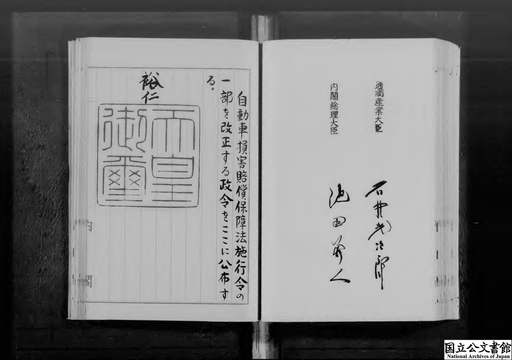 通商産業大臣
石井光次郎
内閣総理大臣
池田勇人
自動車損害賠償保障法施行令の
一部を改正する政令をここに公布す
る。
裕仁
天皇
御璽
国立公文書館
National Archives of Japan